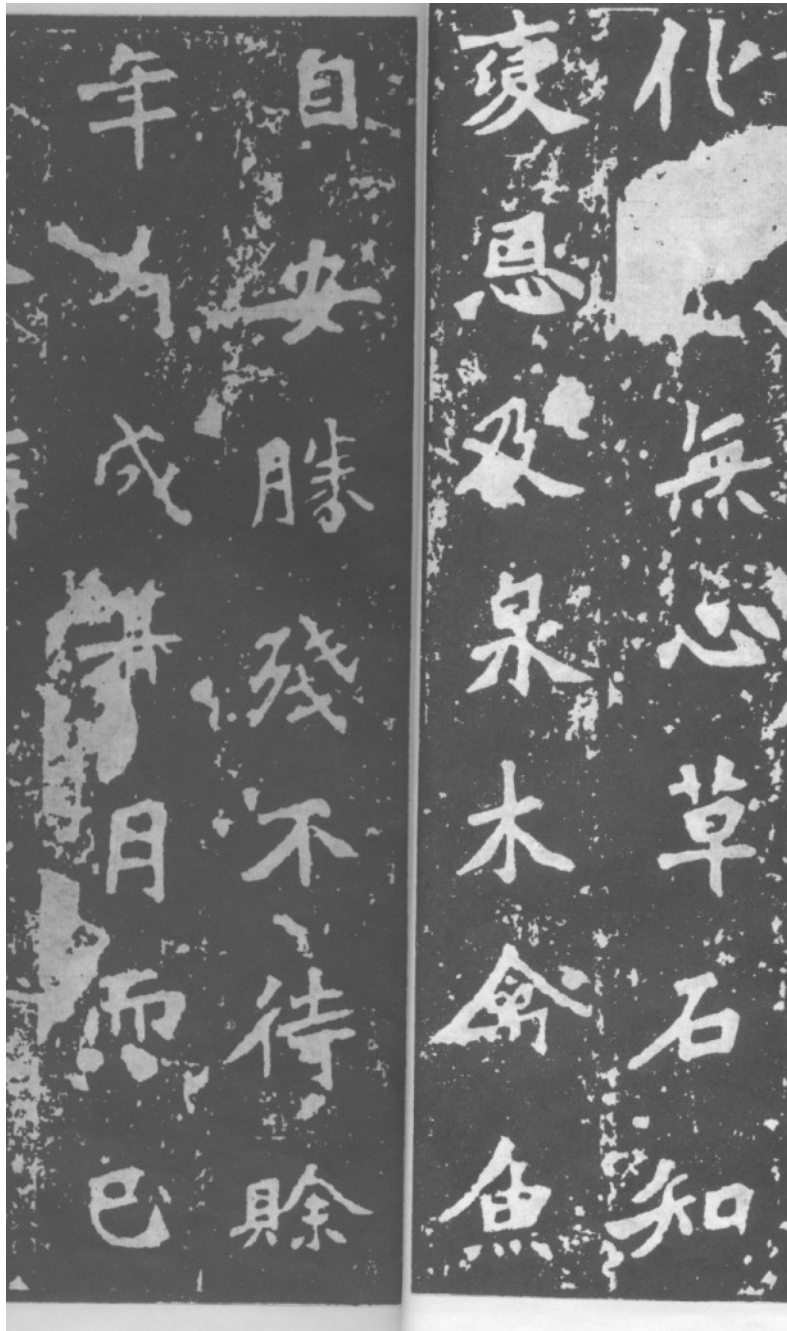 化無心草石知
變恩及泉木禽魚
自安勝殘不待賒
年有成朞月而已